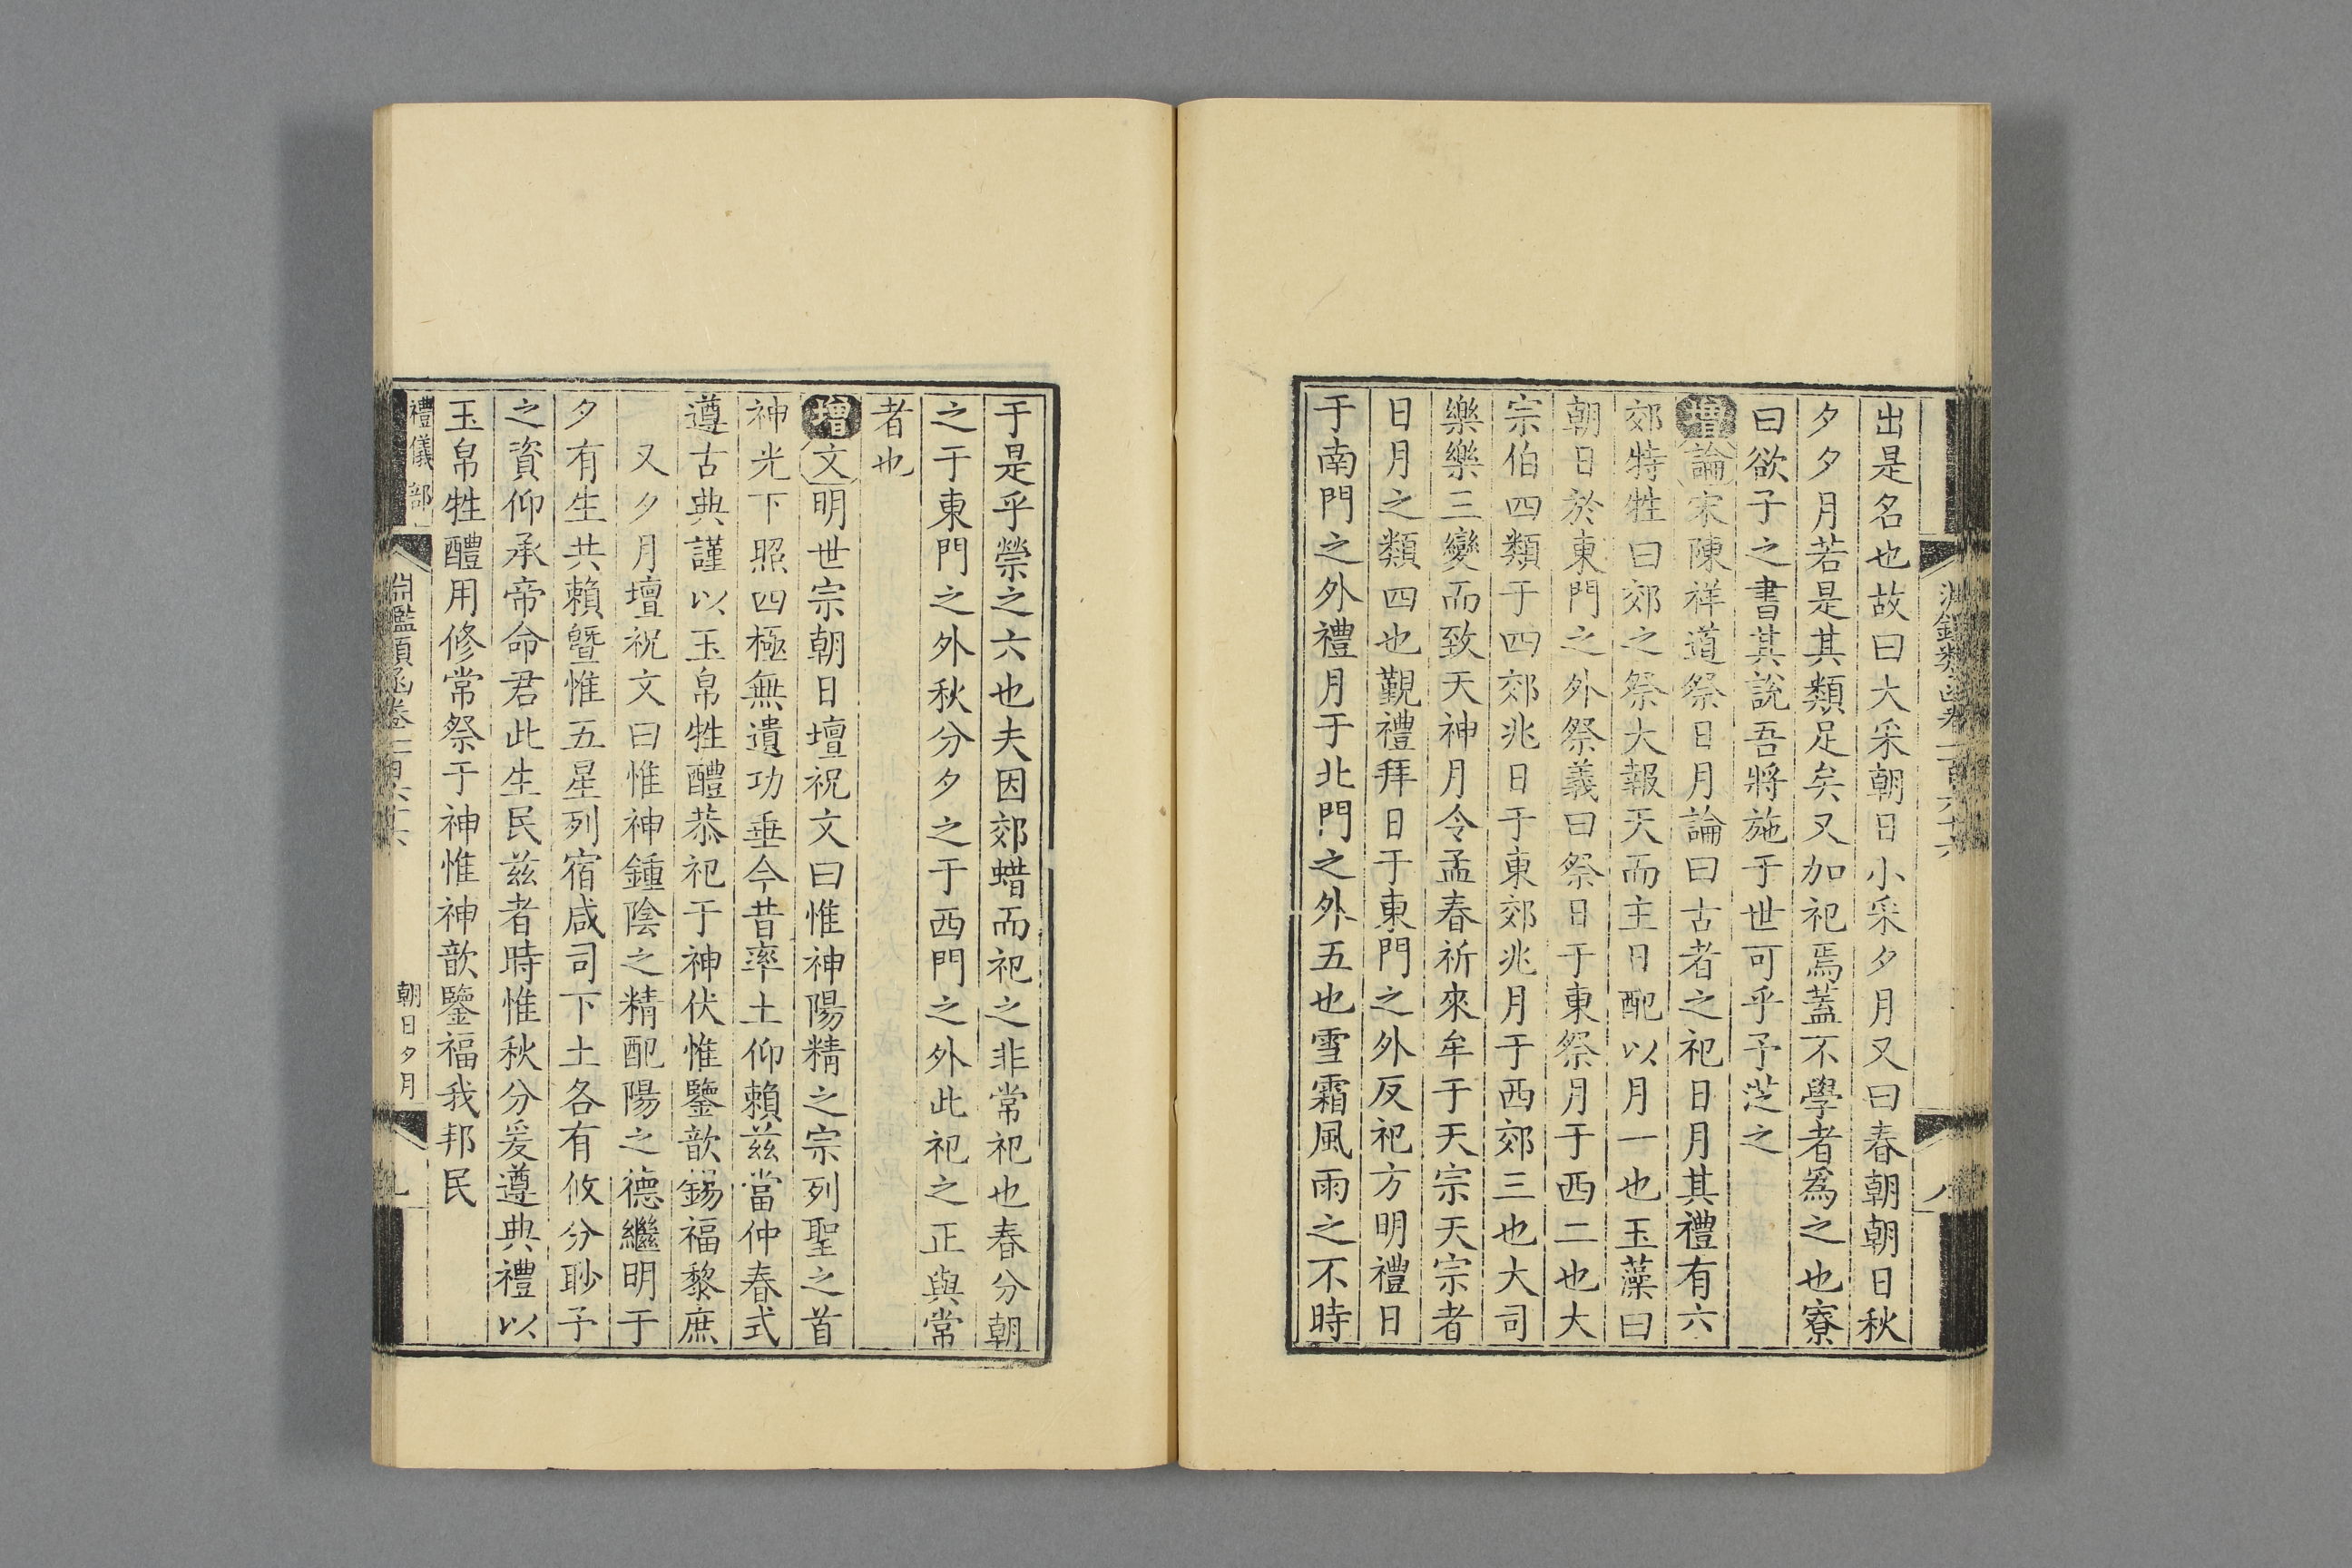 淵鑑類函卷一百六十六
八
出是名也故曰大采朝日小采夕月又曰春朝朝日秋
夕夕月若是其類足矣又加祀焉蓋不學者爲之也寮
曰欲子之書其說吾將施于世可乎予芝之
增論宋陳祥道祭日月論曰古者之祀日月其禮有六
郊特牲曰郊之祭大報天而主日配以月一也玉藻曰
朝日於東門之外祭義曰祭日于東祭月于西二也大
宗伯四類于四郊兆日于東郊兆月于西郊三也大司
樂樂三變而致天神月令孟春祈來年于天宗天宗者
日月之類四也覲禮拜日于東門之外反祀方明禮日
于南門之外禮月于北門之外五也雪霜風雨之不時
于是乎禜之六也夫因郊蜡而祀之非常祀也春分朝
之于東門之外秋分夕之于西門之外此祀之正與常
者也
增文明世宗朝日壇祝文曰惟神陽精之宗列聖之首
神光下照四極無遺功垂今昔率土仰賴茲當仲春式
遵古典謹以玉帛牲醴恭祀于神伏惟鑒歆錫福黎庶
又夕月壇祝文曰惟神鍾陰之精配陽之德繼明于
夕有生共賴曁惟五星列宿咸司下土各有攸分眇予
之資仰承帝命君此生民茲者時惟秋分爰遵典禮以
玉帛牲醴用修常祭于神惟神歆鑒福我邦民
禮儀部
淵鑑類函卷一百六十六
朝日夕月
九